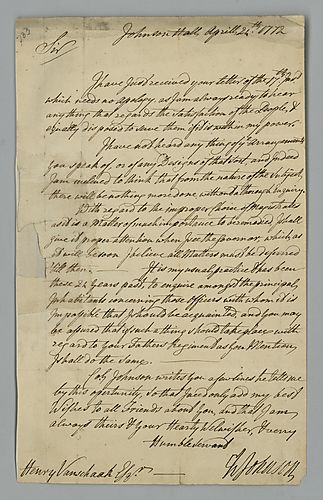 Johnson Hall April 24th. 1772
Sir
I have Just received your letter of the 7th. Inst
which needs no Apology, as I am always ready to hear
any thing that regards the Satisfaction of the People, &
equally disposed to serve them if it is within my power.
I have not heard any thing of the Arrangements
You speak of, or of any Designs of that sort, and indeed
I am inclined to think that from the nature of the Subject,
there will be nothing more done without a thorough Enquiry.
With regard to the improper choice of Magistrates
as it is a Matter of much importance to be remedied, I shall
give it proper attention when I see the Governor, which as
it will be soon I believe all Matters must be deferred
till then. It is my usual practice & has been
these 24 Years past, to enquire amongst the principal
Inhabitants concerning those Officers with whom it is
Impossible that I should be acquainted, and you may
be assured that if such a thing should take place with
regard to your Fathers Regiment as you Mention,
I shall do the same.
Sir John Johnson writes you a few lines he tells me
by this opertunity, so that I need only add my best
Wishes to all Friends about you, and that I am
always theirs & your Hearty Welwisher, & very
Humble Servant
W Johnson
Henry Vanschaak Esqr.